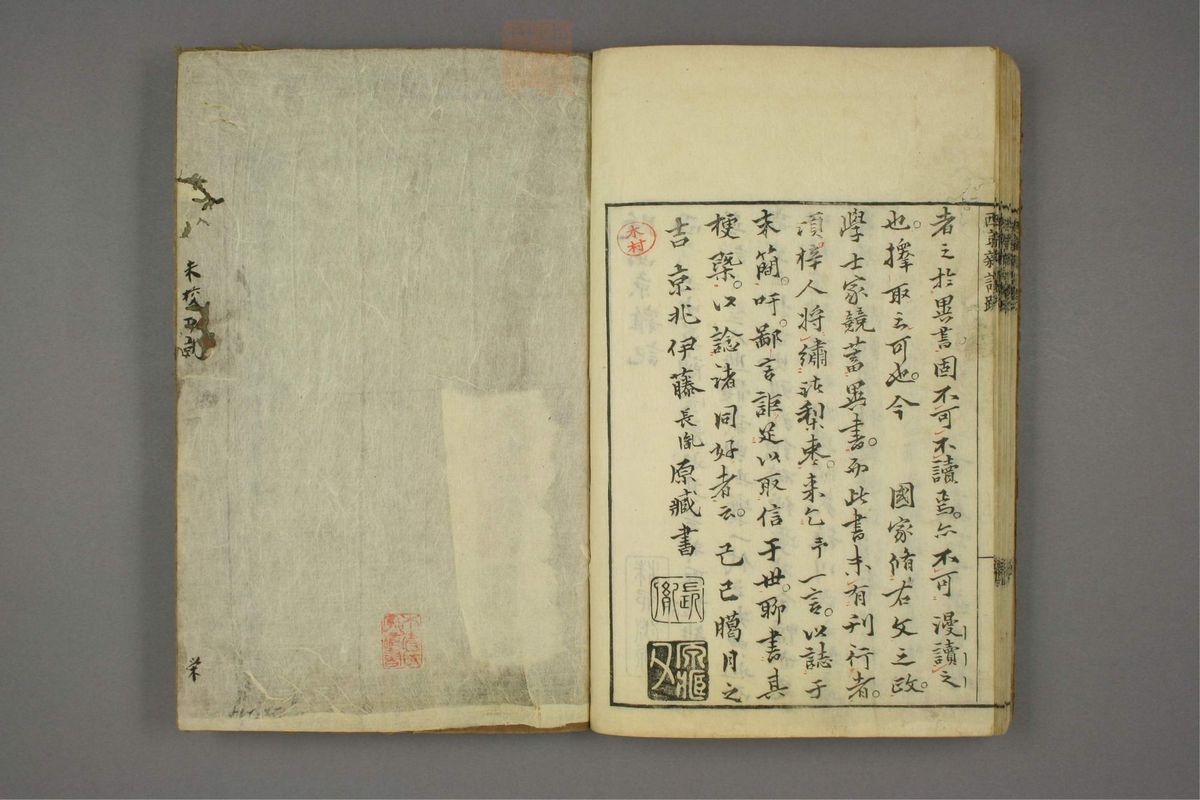 西京雜記跋
者之於異書固不可不讀焉。亦不可漫讀之
也。擇取之可也。今　國家脩右文之政。
學士家競蓄異書。而此書未有刊行者。
頃梓人將繡諸梨棗。来乞予一言。以誌于
末簡。吁。鄙言詎足以取信于世。聊書其
梗槩。以諗諸同好者云。己巳臈月之
吉 京兆伊藤長胤原臧書
木村
長胤
原臧